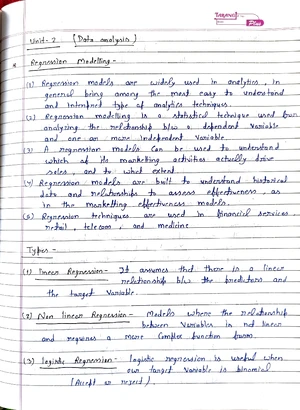 Unit-2 (Data analysis)
Regression Modelling -
(1) Regression models are widely used in analytics, in
general being among the most easy to understand
and interpret type of analytics techniques.
(2) Regression modelling is a statistical technique used for
analyzing the relationship b/w a dependent variable
and one or more independent variable.
(3) A regression models can be used to understand
which of its marketing activities actually drive
sales, and to what extent.
(4) Regression models are built to understand historical
data and relationships to assess effectiveness, as
in the marketing effectiveness models.
(5) Regression techniques are used in financial services
retail, telecom, and medicine
Types -
(1) linear Regression - It assumes that there is a linear
relationship b/w the predictors and
the target variable.
(2) Non linear Regression - Models where the relationship
between variables is not linear
and requires a more complex function form.
(3) logistic Regression - logistic regression is useful when
our target variable is binomial
(Accept or reject).